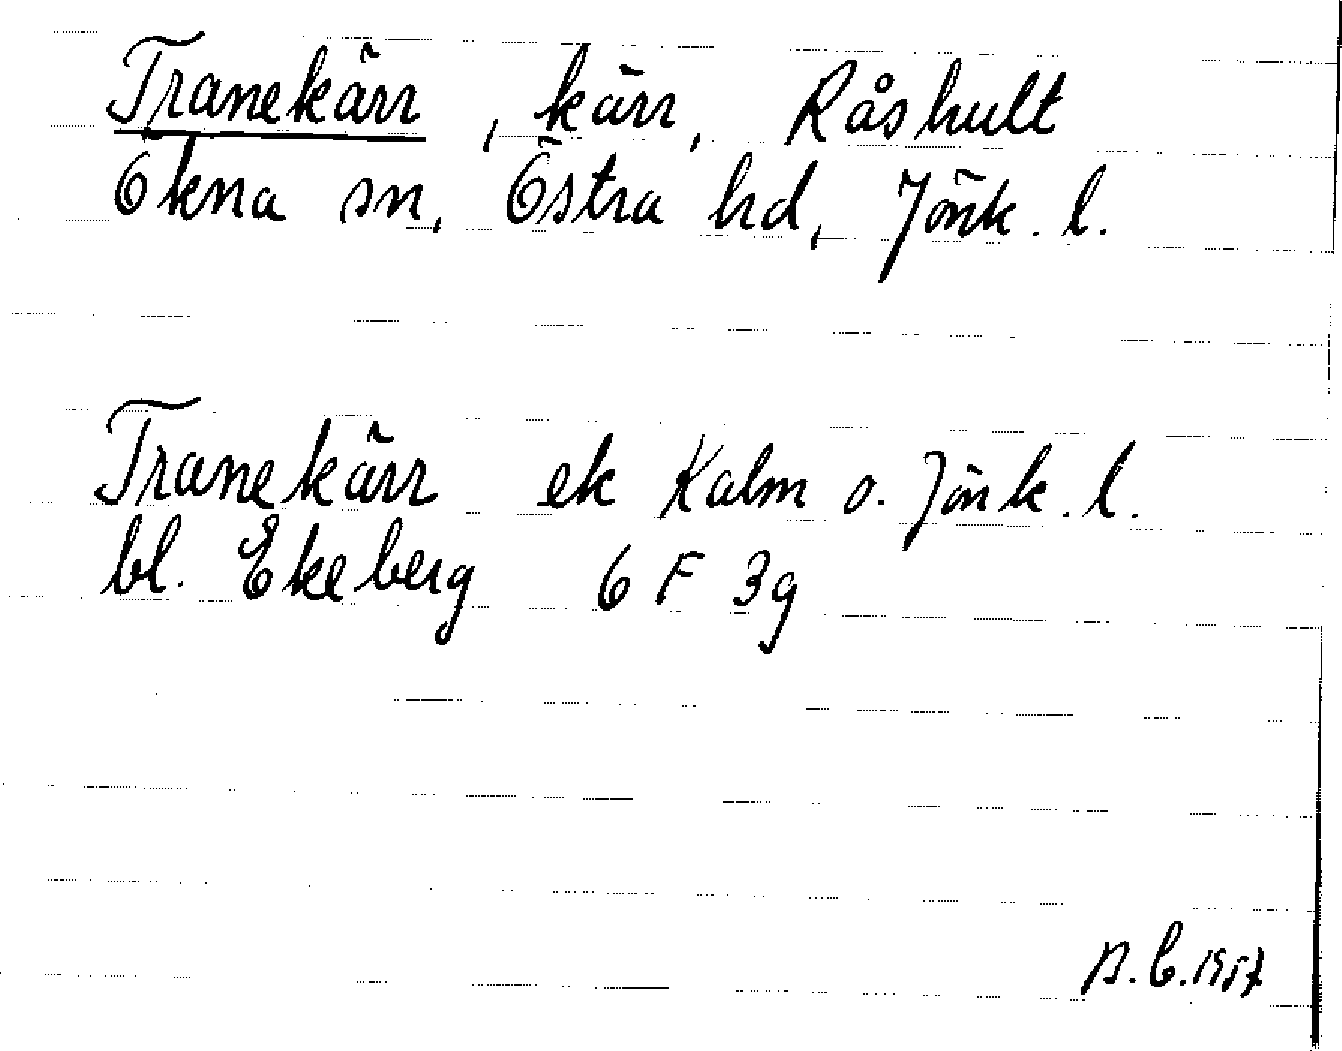 Tranekärr, kärr, Råshult
Ökna sn, Östra hd, Jönk. l.
Tranekärr ek Kalm o. Jönk. l.
bl. Ekeberg 6 F 3g
1957